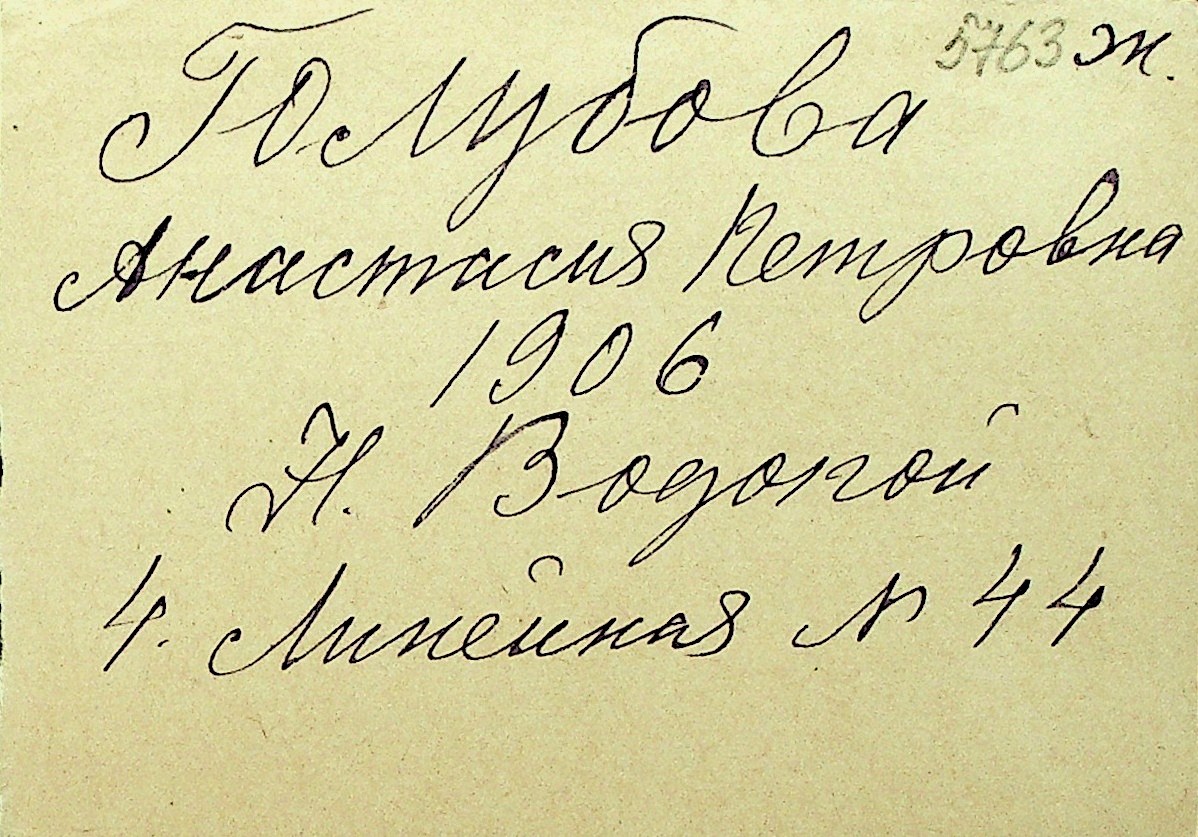 5763 ж.
Голубова
Анастасия Петровна
1906
Н. Водопой
4. Линейная N 44